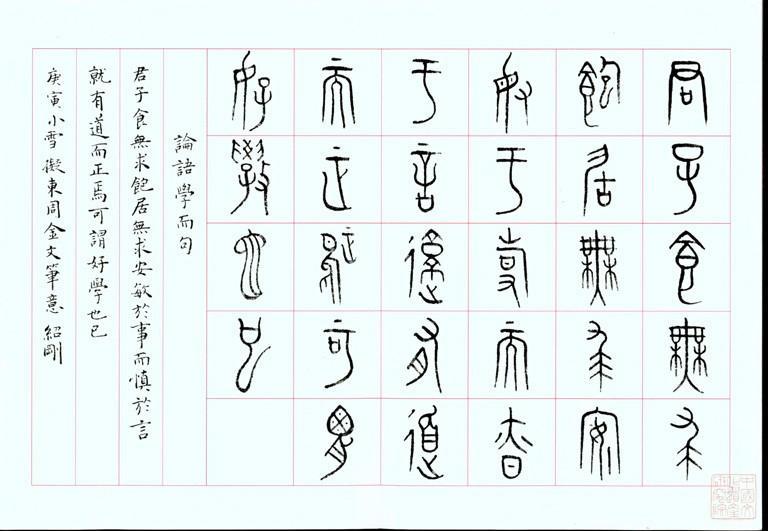 君子食無求
飽居無求安
敏于事而昚
于言就有道
而正焉可胃
好學也已
論語學而句
君子食無求飽居無求安敏於事而慎於言
就有道而正焉可謂好學也已
庚寅小雪 擬東周金文筆意 紹剛